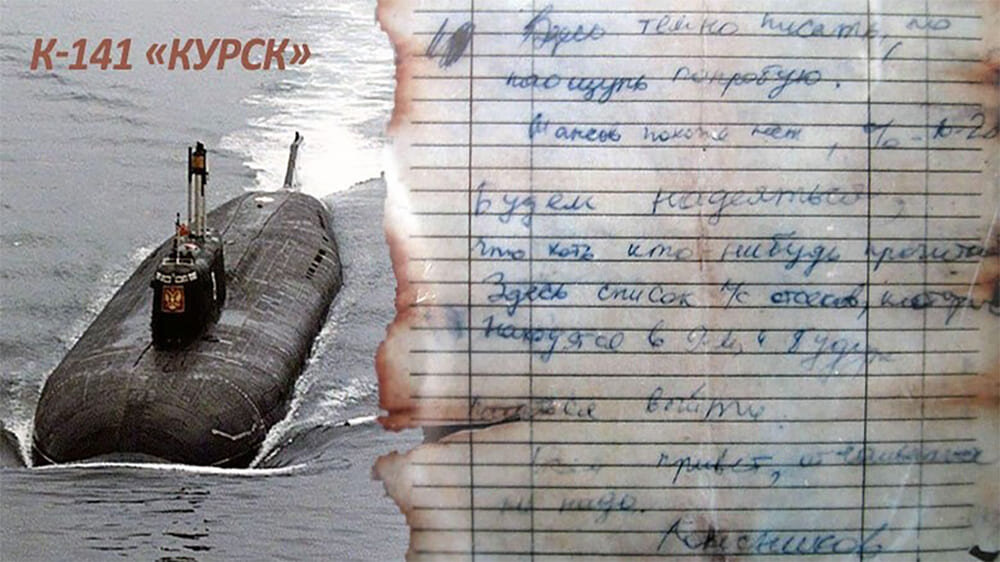 К-141 «КУРСК»
Здесь темно писать, но
наощупь попробую.
Шансов похоже нет, % 10-20
Будем надеяться,
что хоть кто нибудь прочитает
Здесь список л/с отсеков, которые
находятся в 9-м и будут
выйти.
привет, отчаиваться
не надо.
Колесников